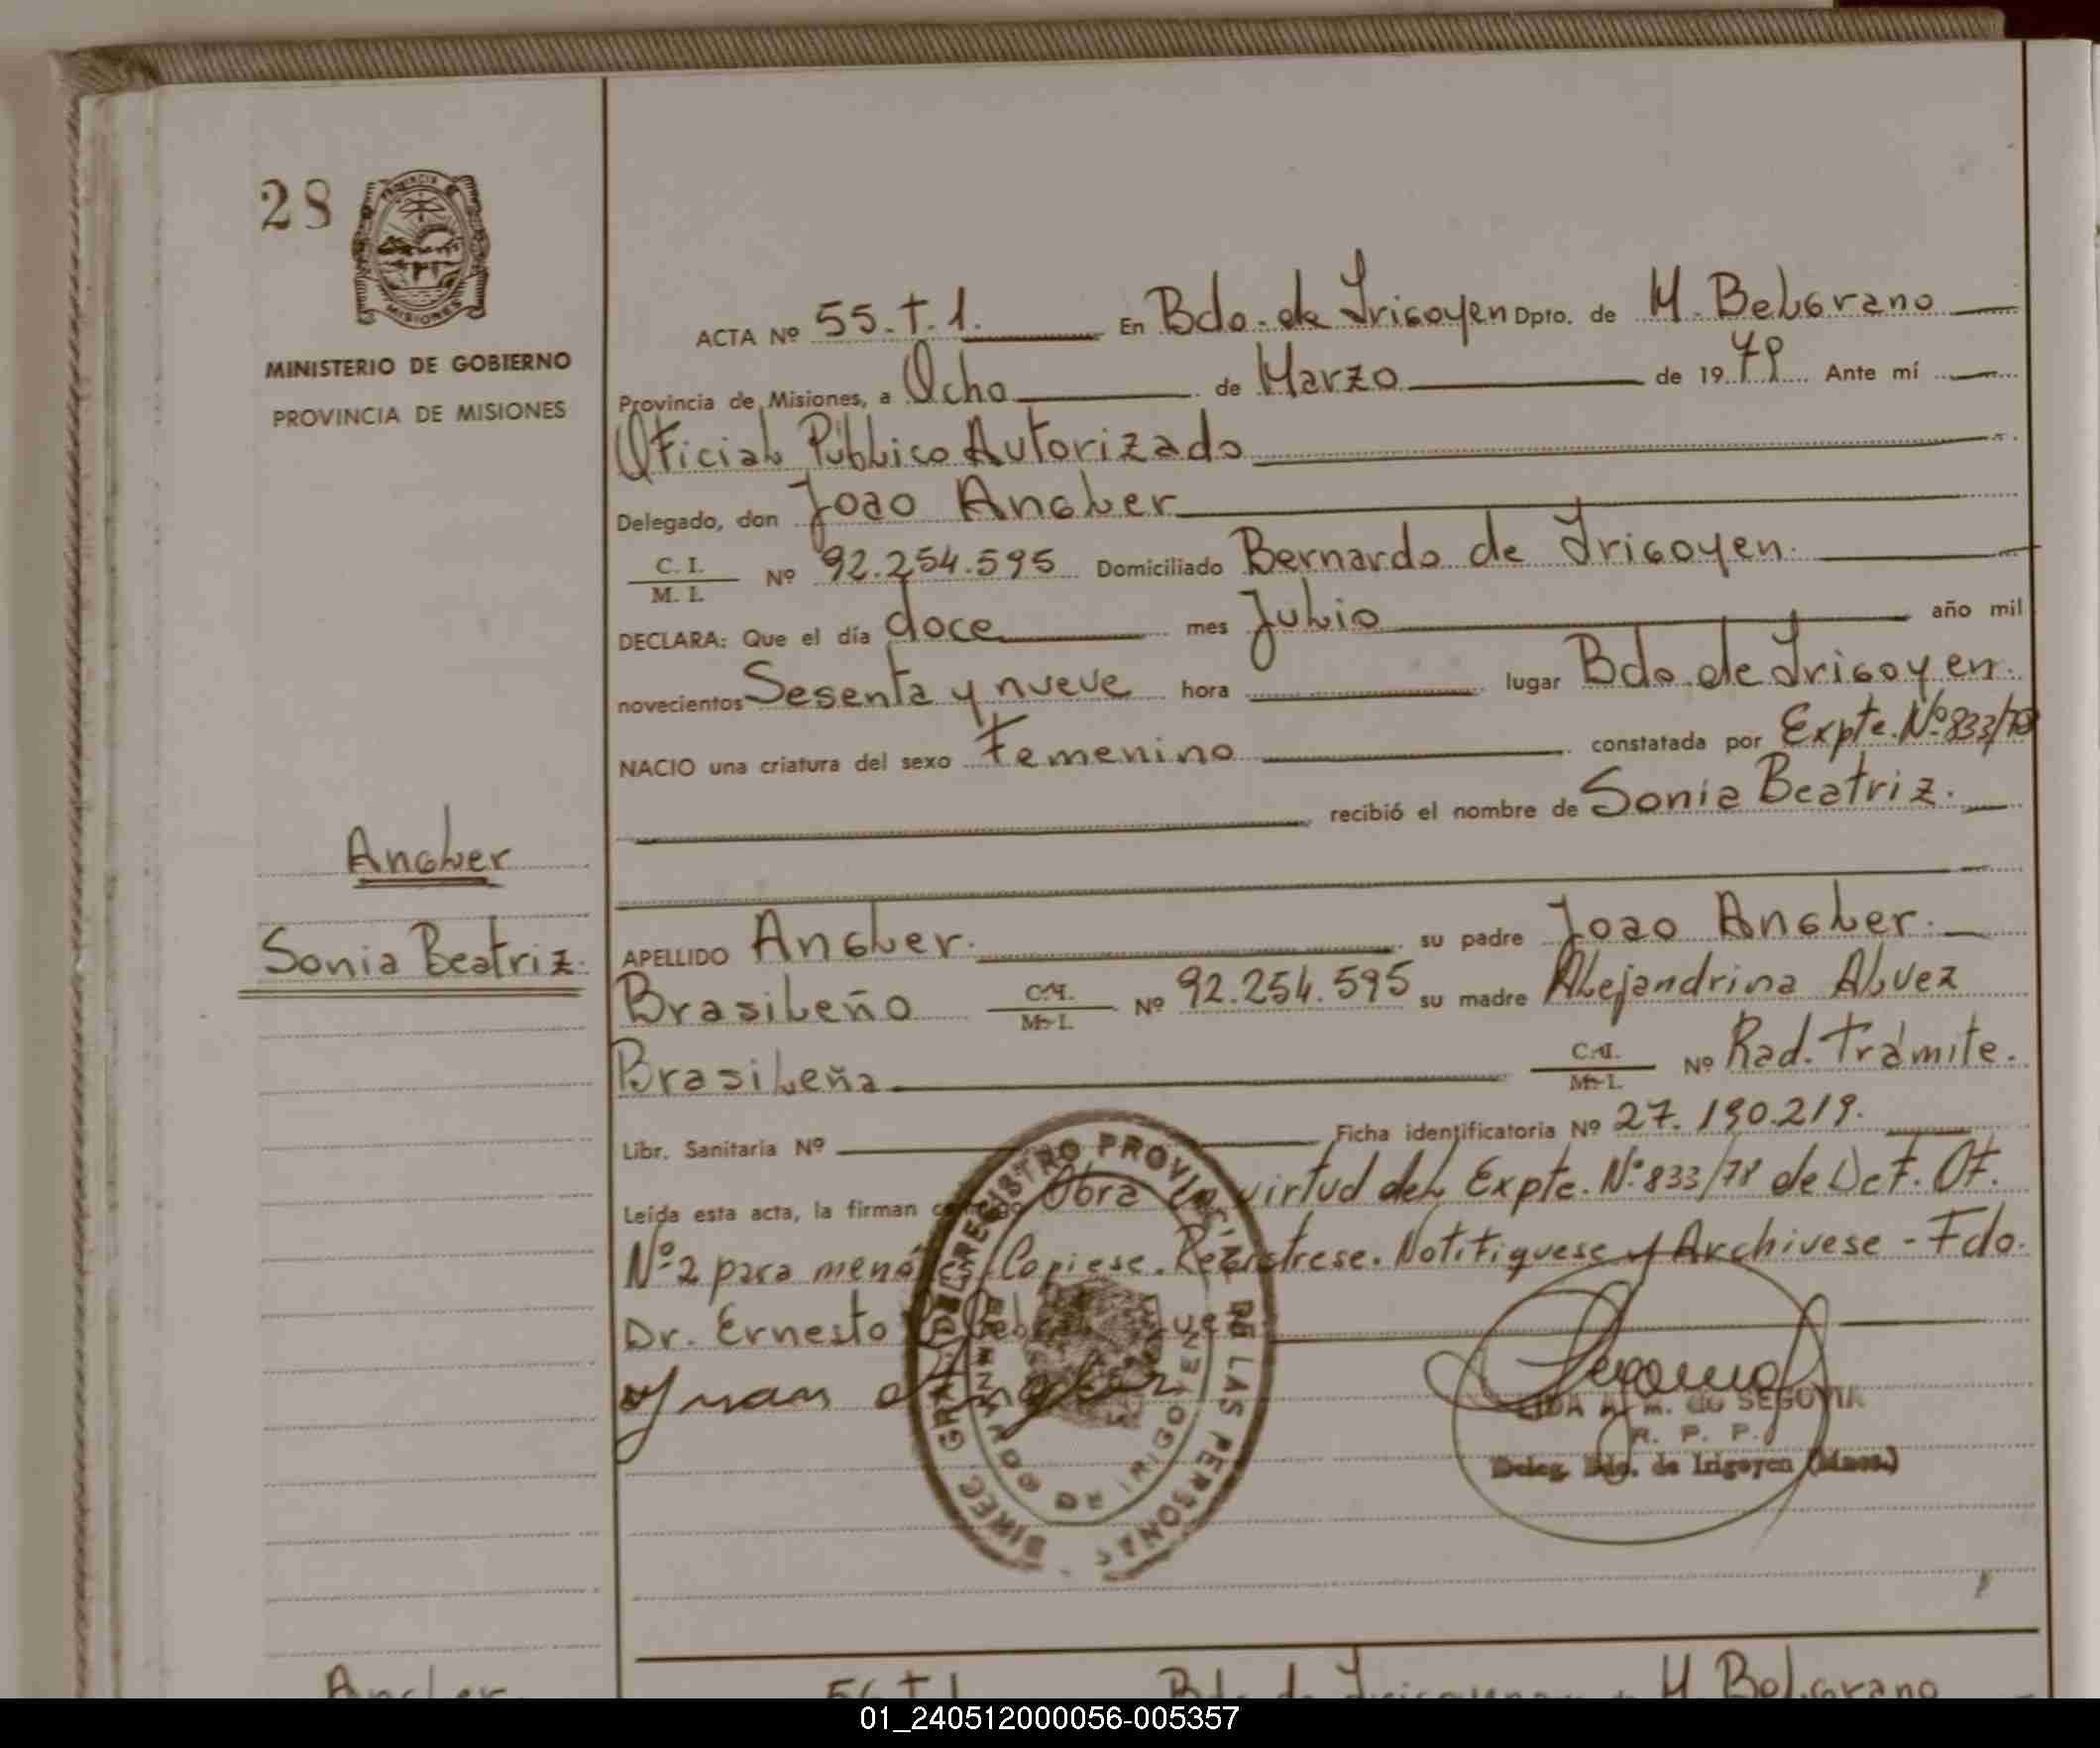 28
PROVINCIA
MISIONES
MINISTERIO DE GOBIERNO
PROVINCIA DE MISIONES
ACTA Nº 55.T.1. En Bdo. de Irigoyen Dpto. de M. Belgrano
Provincia de Misiones, a Ocho de Marzo de 1979 Ante mí
Oficial Público Autorizado
Delegado, don Joao Angler
C. I.
M. I. Nº 92.254.595 Domiciliado Bernardo de Irigoyen.
DECLARA: Que el día doce mes Julio año mil
novecientos Sesenta y nueve hora lugar Bdo. de Irigoyen.
NACIO una criatura del sexo Femenino constatada por Expte. Nº 833/78
recibió el nombre de Sonia Beatriz.
Angler
Sonia Beatriz.
APELLIDO Angler. su padre Joao Angler.
Brasileño C.I. M.I. Nº 92.254.595 su madre Alejandrina Alvez
Brasileña C.I. M.I. Nº Rad. Trámite.
Libr. Sanitaria Nº Ficha identificatoria Nº 27.190.219.
Leída esta acta, la firman conmigo Obra en virtud del Expte. Nº 833/78 de Def. Of.
Nº 2 para menores Copiese. Registrese. Notifiquese y Archivese - Fdo.
Dr. Ernesto
Juan Angler
DIREC GRAL DEL REGISTRO PROVINCIAL DE LAS PERSONAS
BERNARDO DE IRIGOYEN
de SEGOVIA
R. P. P.
Deleg. Bdo. de Irigoyen (Mnes.)
Angler 56 T 1 Bdo. de Irigoyen M. Belgrano
01_240512000056-005357